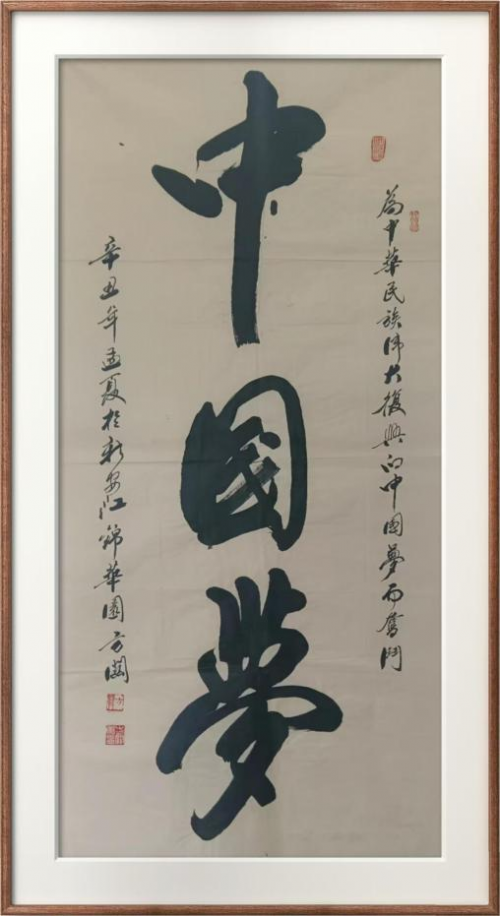 為中華民族偉大復興的中國夢而奮鬥
中國夢
辛丑年孟夏於新安江錦華園方